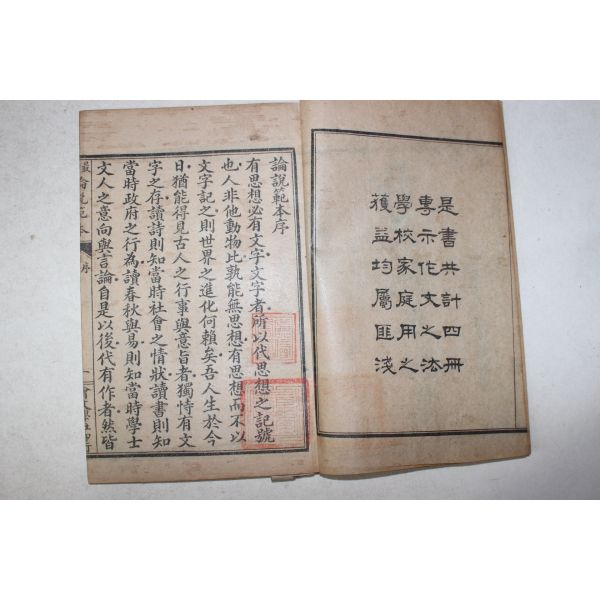 是書共計四冊
專示作文之法
學校家庭用之
獲益均屬匪淺
論說範本序
有思想必有文字文字者所以代思想之記號
也人非他動物比孰能無思想有思想而不以
文字記之則世界之進化何賴矣吾人生於今
日猶能得見古人之行事與意旨者獨恃有文
字之存讀詩則知當時社會之情狀讀書則知
當時政府之行為讀春秋與易則知當時學士
文人之意向與言論自是以後代有作者然皆
論說範本
序